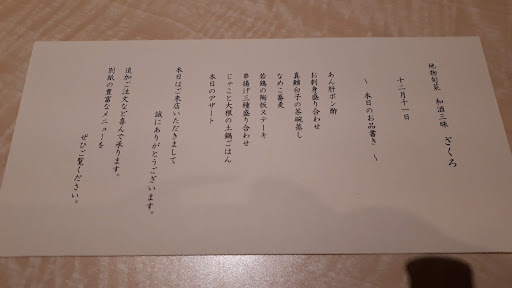 地物旬菜　和酒三昧　ざくろ
十二月十一日
～　本日のお品書き　～
あん肝ポン酢
お刺身盛り合わせ
真鱈白子の茶碗蒸し
なめこ蕎麦
若鶏の陶板ステーキ
串揚げ三種盛り合わせ
じゃこと大根の土鍋ごはん
本日のデザート
本日はご来店いただきまして
誠にありがとうございます。
追加ご注文など喜んで承ります。
別紙の豊富なメニューを
ぜひご覧ください。